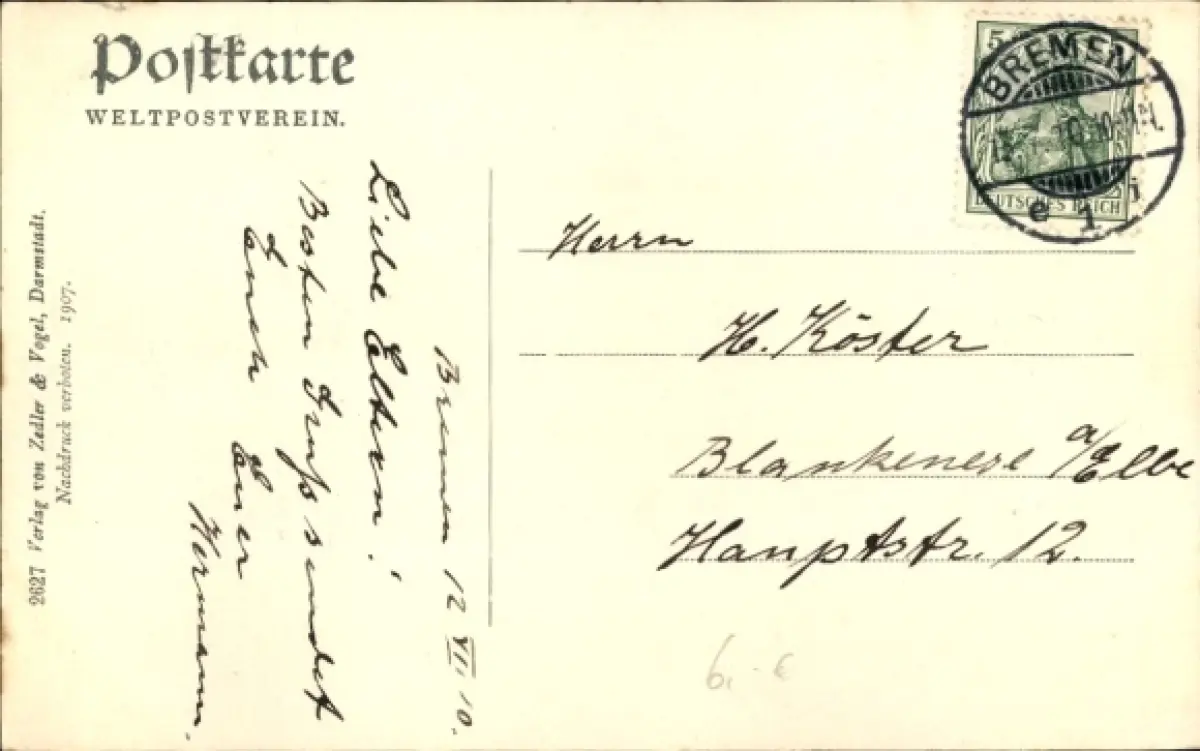 Postkarte
WELTPOSTVEREIN.
Bremen 12 VII 10.
Liebe Eltern!
Besten Gruß sendet
Euch Euer
Hermann.
2627 Verlag von Zedler & Vogel, Darmstadt.
Nachdruck verboten. 1907.
5
BREMEN
10-11V.
e 1 i
DEUTSCHES REICH
Herrn
H. Köster
Blankenese a/Elbe
Hauptstr. 12.
6,- €